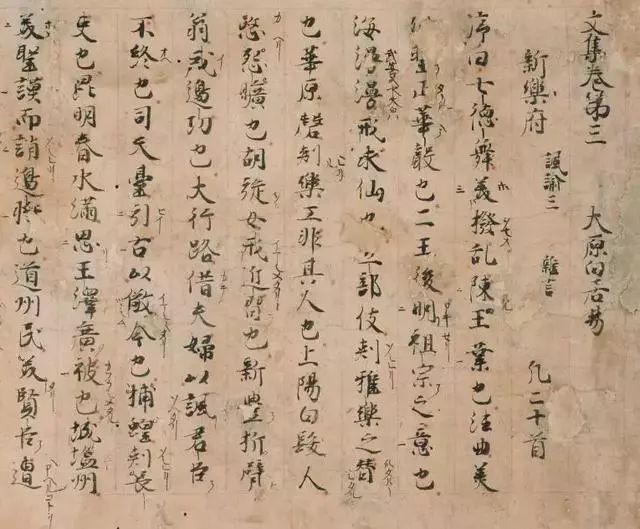 文集卷第三 大原白居易
新樂府 諷諭三 雜言 凡二十首
序曰七德舞美撥亂陳王業也法曲美
列聖正華聲也二王後明祖宗之意也
海漫漫戒求仙也立部伎刺雅樂之替
也華原磬刺樂工非其人也上陽白髮人
愍怨曠也胡旋女戒近習也新豐折臂
翁戒邊功也大行路借夫婦以諷君臣
不終也司天臺引古以儆今也捕蝗刺長
吏也昆明春水滿思王澤廣被也城塩州
美聖謨而誚邊將也道州民美賢臣遭